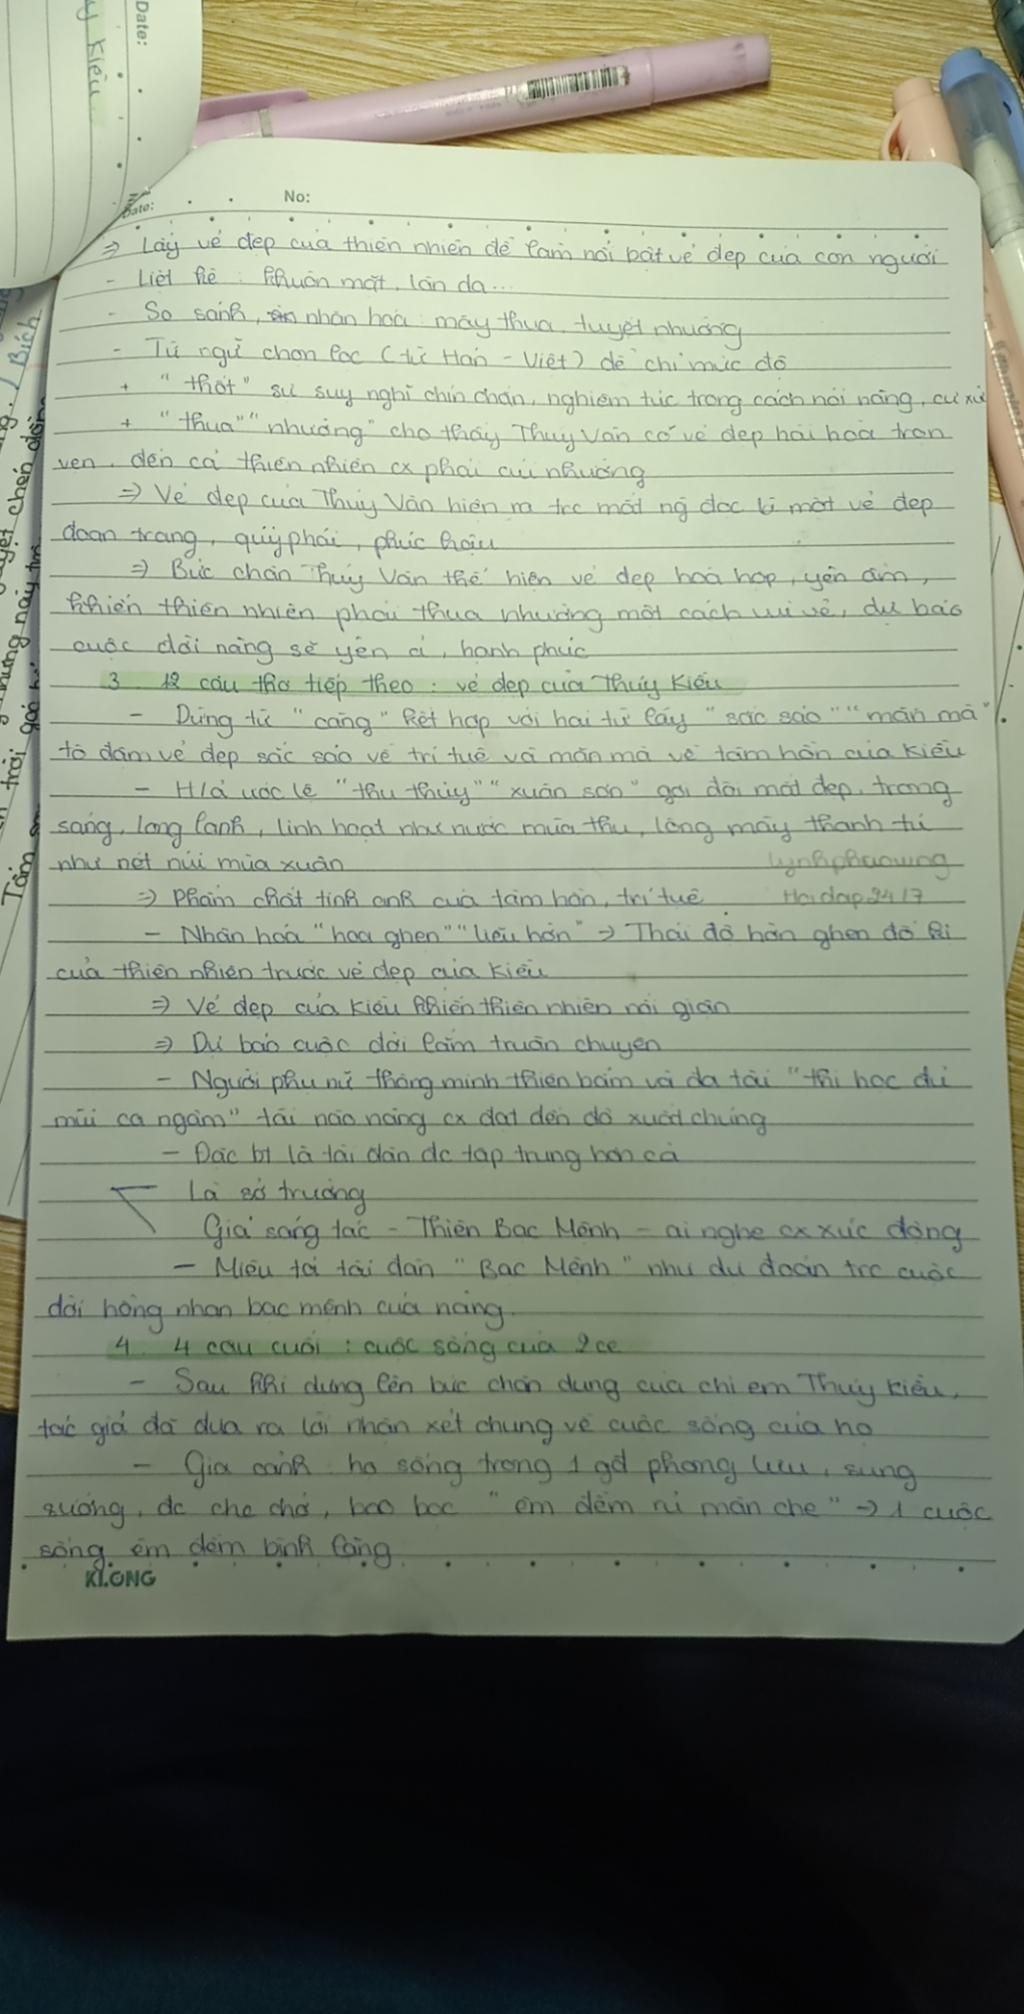 Date:
y Kiều
Date:
No:
⇒ Lấy vẻ đẹp của thiên nhiên để làm nổi bật vẻ đẹp của con người
- Liệt kê : khuôn mặt, làn da...
- So sánh, nhân hoá : mây thua, tuyết nhường
- Từ ngữ chọn lọc (từ Hán - Việt) để chỉ mức độ
+ "thốt" sự suy nghĩ chín chắn, nghiêm túc trong cách nói năng, cư xử
+ "thua" "nhường" cho thấy Thuý Vân có vẻ đẹp hài hoà trọn
vẹn, đến cả thiên nhiên cx phải cúi nhường
⇒ Vẻ đẹp của Thuý Vân hiện ra trc mắt ng đọc là một vẻ đẹp
đoan trang, quý phái, phúc hậu
⇒ Bức chân Thuý Vân thể hiện vẻ đẹp hoà hợp, yên ấm,
khiến thiên nhiên phải thua nhường một cách vui vẻ, dự báo
cuộc đời nàng sẽ yên ả, hạnh phúc
3. 12 câu thơ tiếp theo : vẻ đẹp của Thuý Kiều
- Dùng từ "càng" kết hợp với hai từ láy "sắc sảo" "mặn mà"
tô đậm vẻ đẹp sắc sảo về trí tuệ và mặn mà về tâm hồn của Kiều
- H/ả ước lệ "thu thuỷ" "xuân sơn" gợi đôi mắt đẹp, trong
sáng, long lanh, linh hoạt như nước mùa thu, lông mày thanh tú
như nét núi mùa xuân
lynhphuowng
⇒ Phẩm chất tinh anh của tâm hồn, trí tuệ
Hoidap247
- Nhân hoá "hoa ghen" "liễu hờn" ⇒ Thái độ hờn ghen đố kị
của thiên nhiên trước vẻ đẹp của Kiều
⇒ Vẻ đẹp của Kiều khiến thiên nhiên nổi giận
⇒ Dự báo cuộc đời lắm truân chuyên
- Người phụ nữ thông minh thiên bẩm và đa tài "thi hoạ đủ
mùi ca ngâm" tài nào nàng cx đạt đến độ xuất chúng
- Đặc bt là tài đàn đc tập trung hơn cả
Là sở trường
Giả sáng tác - Thiên Bạc Mệnh - ai nghe cx xúc động
- Miêu tả tài đàn "Bạc Mệnh" như dự đoán trc cuộc
đời hồng nhan bạc mệnh của nàng.
4. 4 câu cuối : cuộc sống của 2 ce
- Sau khi dựng lên bức chân dung của chị em Thuý Kiều,
tác giả đã đưa ra lời nhận xét chung về cuộc sống của họ
- Gia cảnh : họ sống trong 1 gđ phong lưu, sung
sướng, đc che chở, bao bọc "êm đềm rủ màn che" → 1 cuộc
sống êm đềm bình lặng.
KLONG